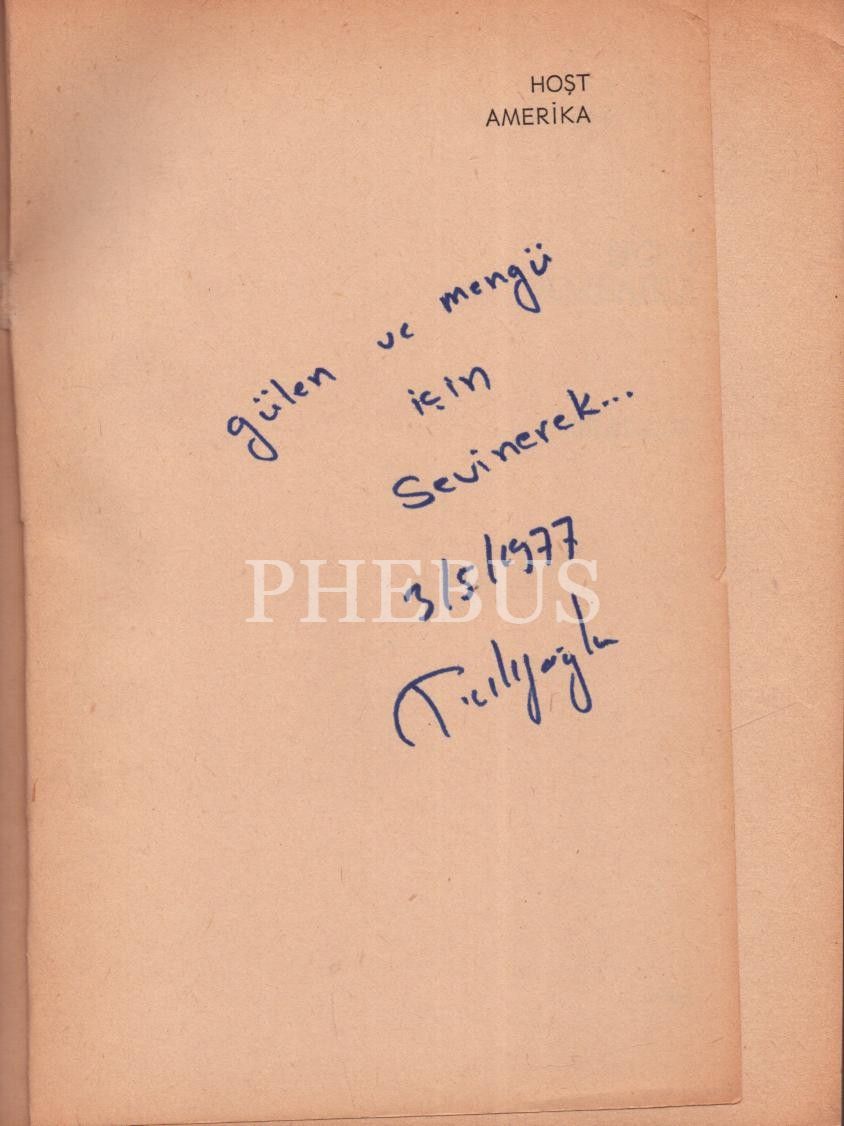 HOŞT
AMERİKA
gülen ve mengü
için
Sevinerek...
3/5/1977
PHEBUS